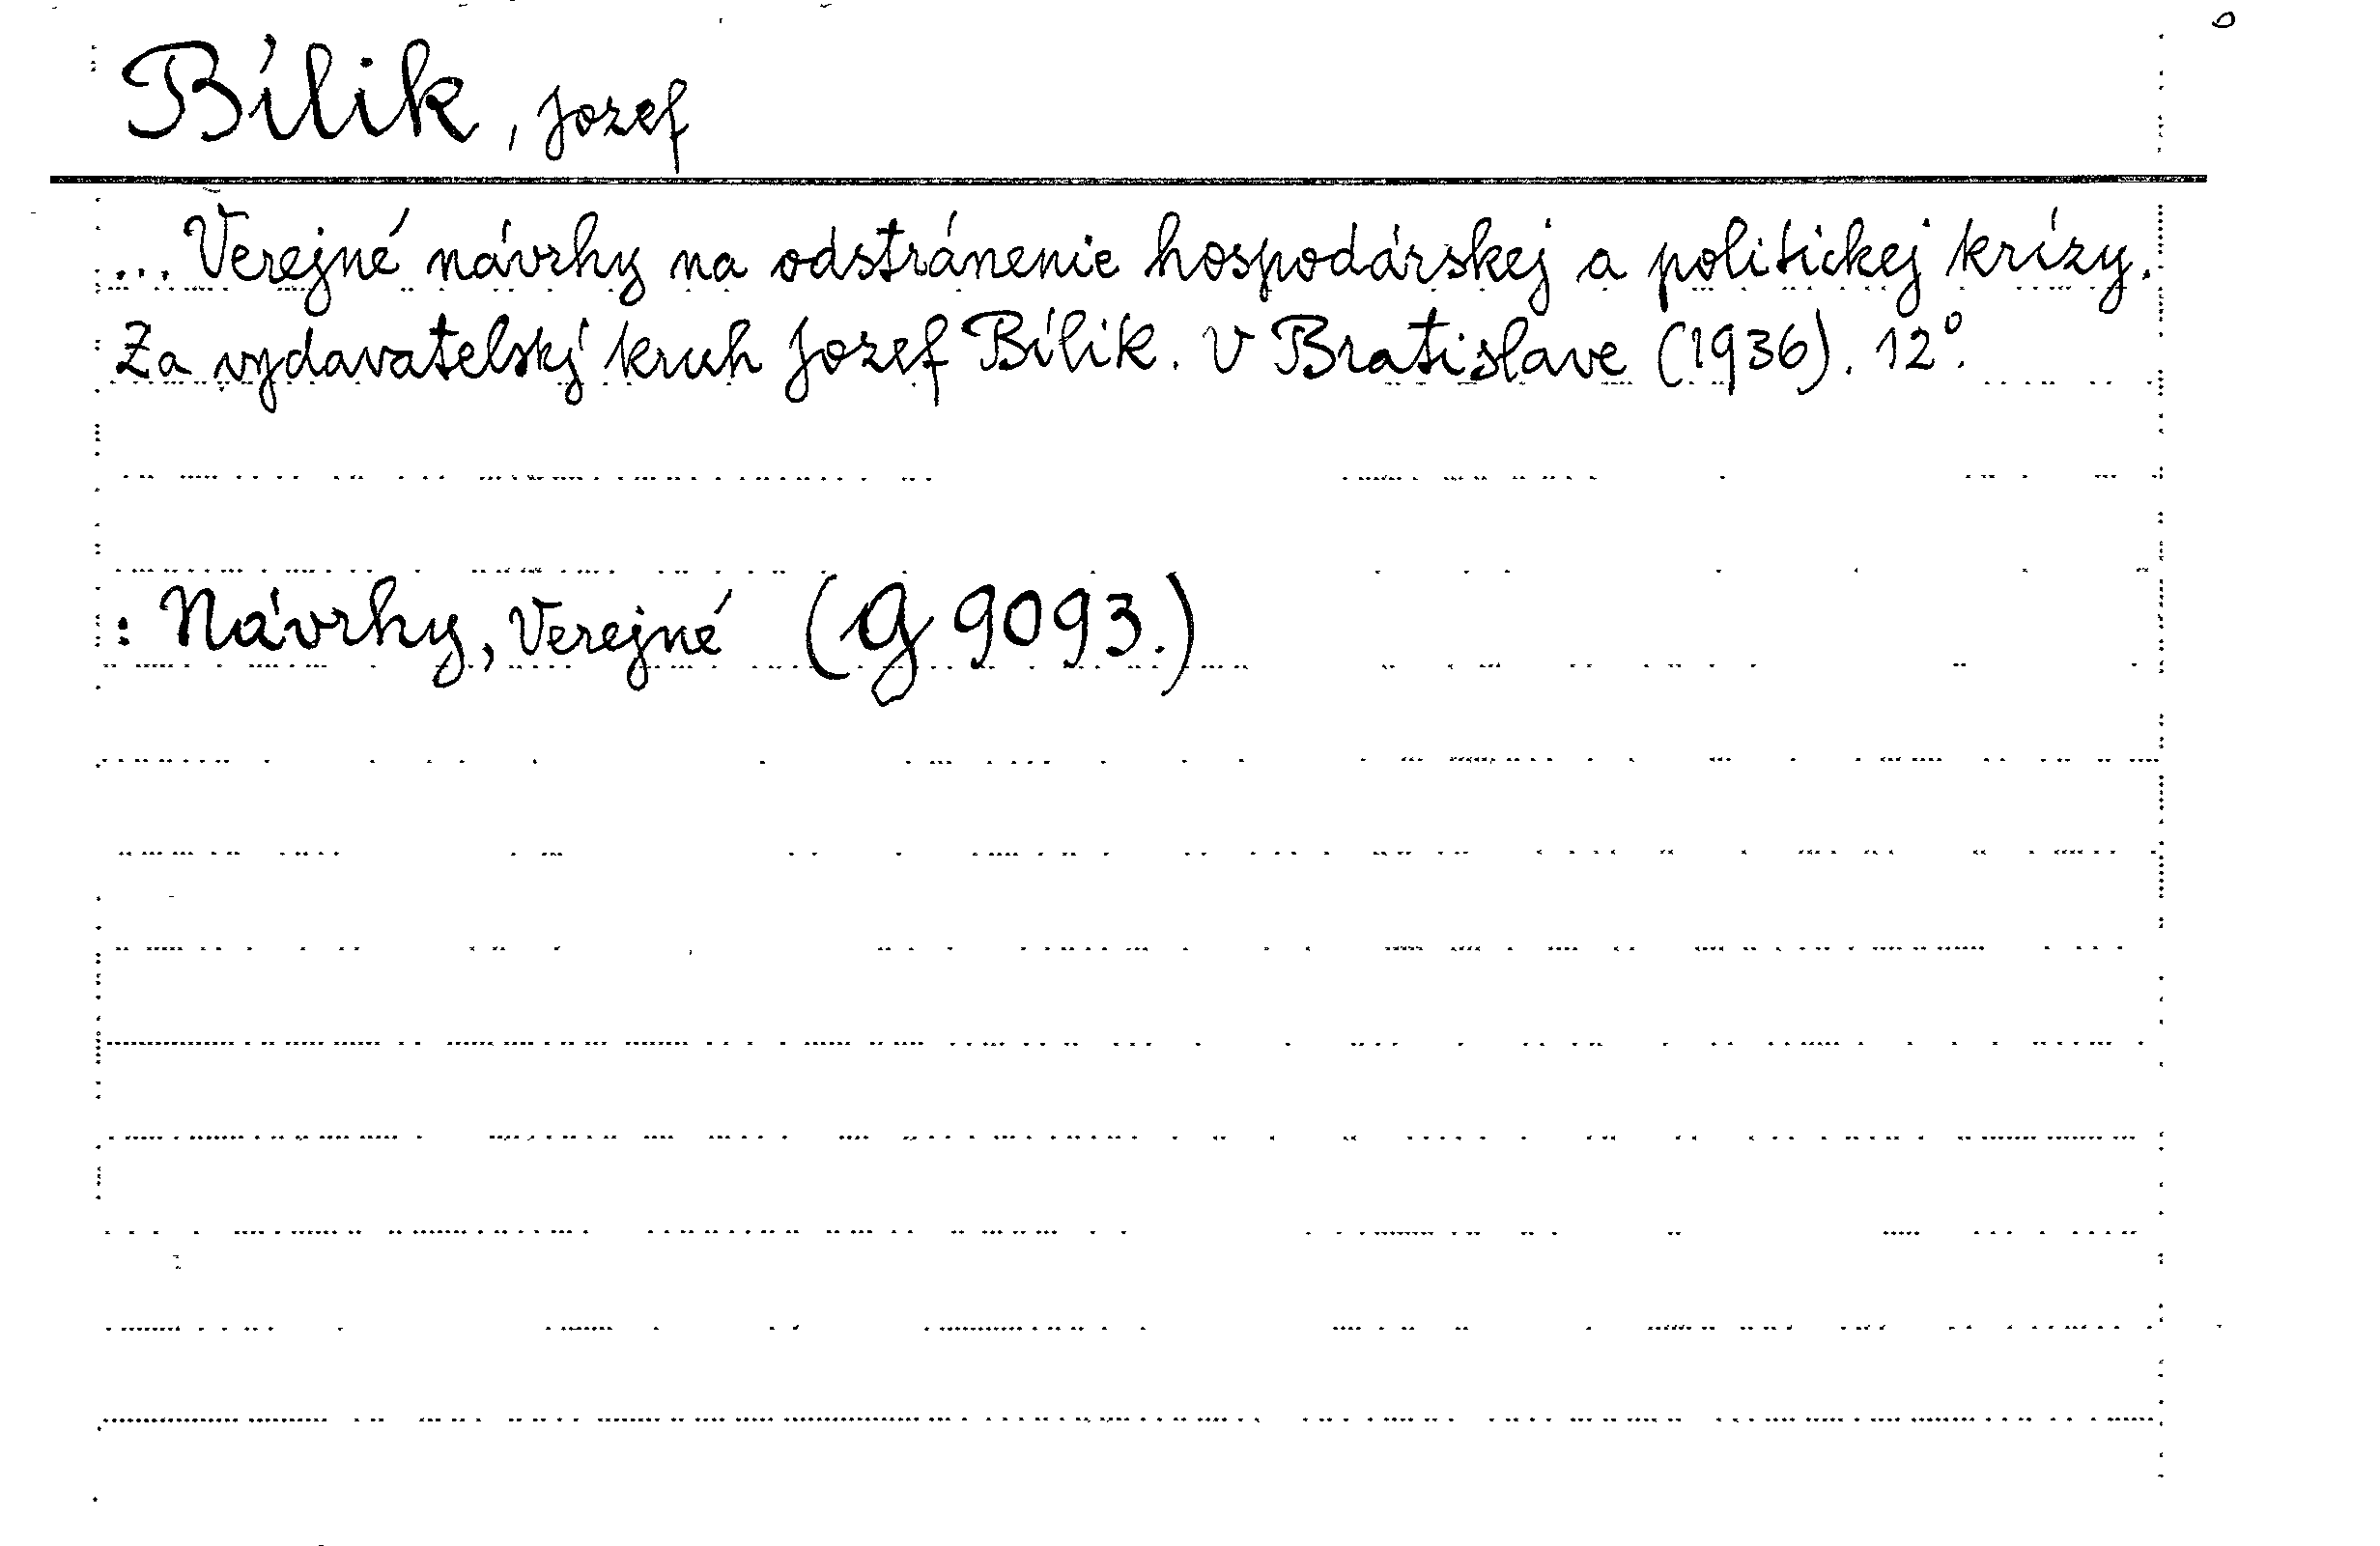 Bílik, Jozef
... Verejné návrhy na odstránenie hospodárskej a politickej krízy.
Za vydavatelský kruh Jozef Bílik. V Bratislave (1936). 12°.
: Návrhy, Verejné (G 9093.)